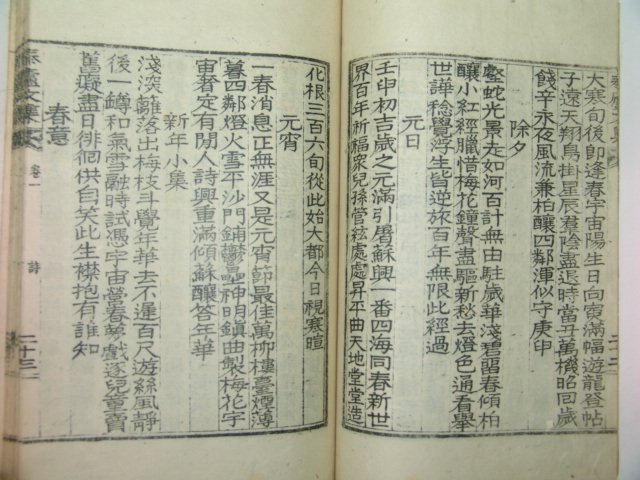 大寒旬後即逢春宇宙陽生日向寅滿幅遊龍登帖
子遠天翔鳥掛星辰羣陰盡退時當丑萬機昭回歲
餞辛永夜風流兼柏釀四鄰渾似守庚申
除夕
壑蛇光景走如河百計無由駐歲華淺碧留春傾柏
釀小紅經臘惜梅花鐘聲盡驅新愁去燈色通看擧
世譁稔覺浮生皆逆旅百年無限此經過
元日
壬申初吉歲之元滿引屠蘇興一番四海同春新世
界百年祈福衆兒孫管絃處處昇平曲天地堂堂造
化根三百六旬從此始大都今日視寒暄
元宵
一春消息正無涯又是元宵節最佳萬柳樓臺煙薄
暮四鄰燈火雪平沙門鋪鬱壘神明鎮曲製梅花宇
宙奢定有閒人詩興重滿傾蘇釀答年華
新年小集
淺深離落出梅枝斗覺年華去不遲百尺遊絲風靜
後一罇和氣雪融時試憑宇宙營春夢戲逐兒童賣
舊癡盡日徘徊供自笑此生襟抱有誰知
春意
卷一
詩
二十三